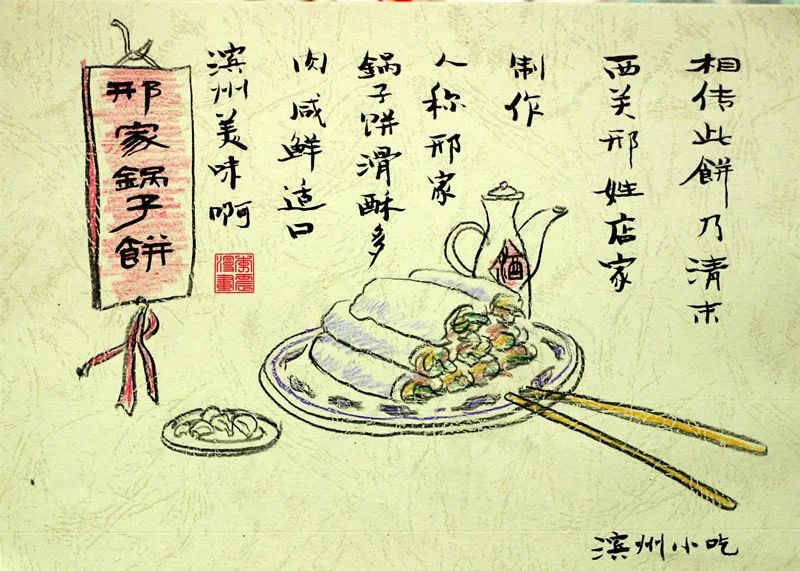 相传此餅乃清末
西关邢姓店家
制作
人称邢家
锅子饼滑酥多
肉咸鲜适口
滨州美味啊
邢家鍋子餅
酒
李震漫畫
滨州小吃